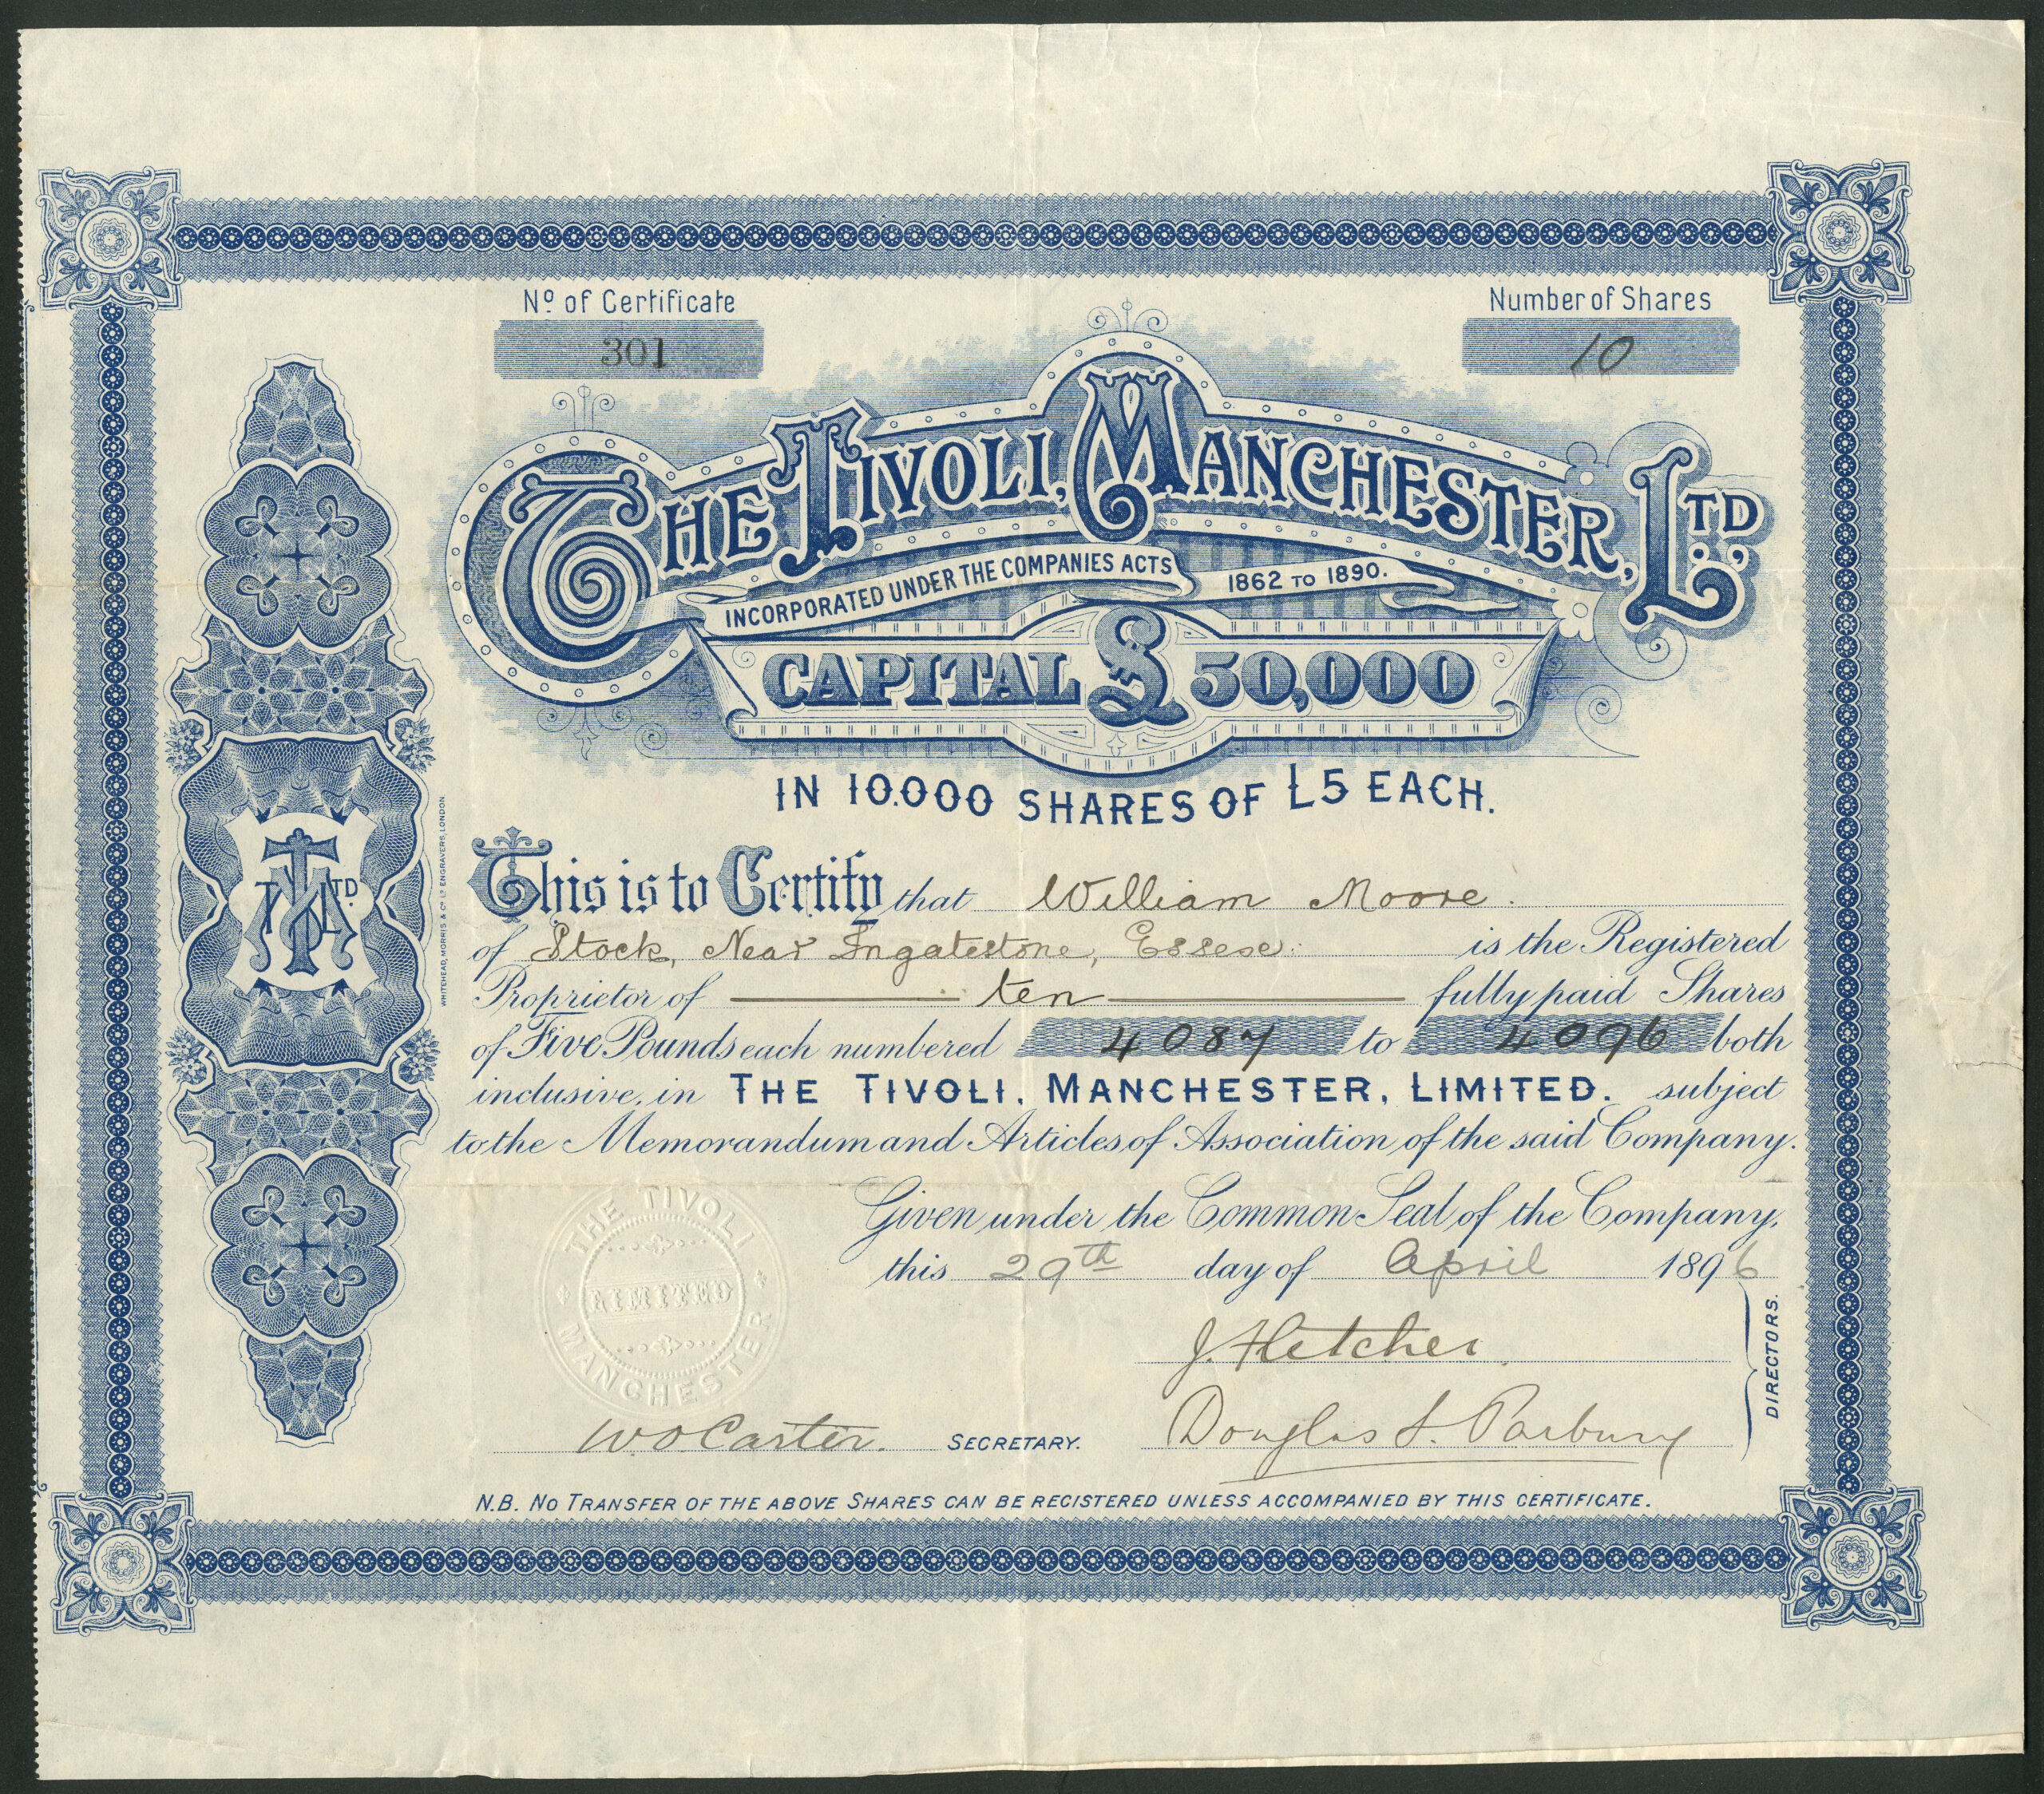 Nº of Certificate
Number of Shares
301
10
THE TIVOLI, MANCHESTER, LTD.,
INCORPORATED UNDER THE COMPANIES ACTS 1862 TO 1890.
CAPITAL £50,000
IN 10.000 SHARES OF £5 EACH.
This is to Certify that William Moore.
of Stock, Near Ingatestone, Essex. is the Registered
Proprietor of ten fully paid Shares
of Five Pounds each numbered 4087 to 4096 both
inclusive, in THE TIVOLI, MANCHESTER, LIMITED. subject
to the Memorandum and Articles of Association of the said Company.
Given under the Common Seal of the Company,
this 29th day of April 1896
J. Fletcher.
Douglas S. Parbury
DIRECTORS.
W O Carter. SECRETARY.
N.B. NO TRANSFER OF THE ABOVE SHARES CAN BE REGISTERED UNLESS ACCOMPANIED BY THIS CERTIFICATE.
THE TIVOLI
LIMITED
MANCHESTER
TMLTD.
WHITEHEAD, MORRIS & Cº Lᵀ ENGRAVERS, LONDON